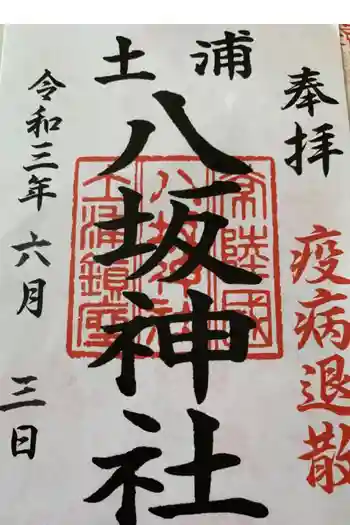 奉拝
疫病退散
土浦
八坂神社
常陸國
八坂神社
土浦鎮座
令和三年六月三日